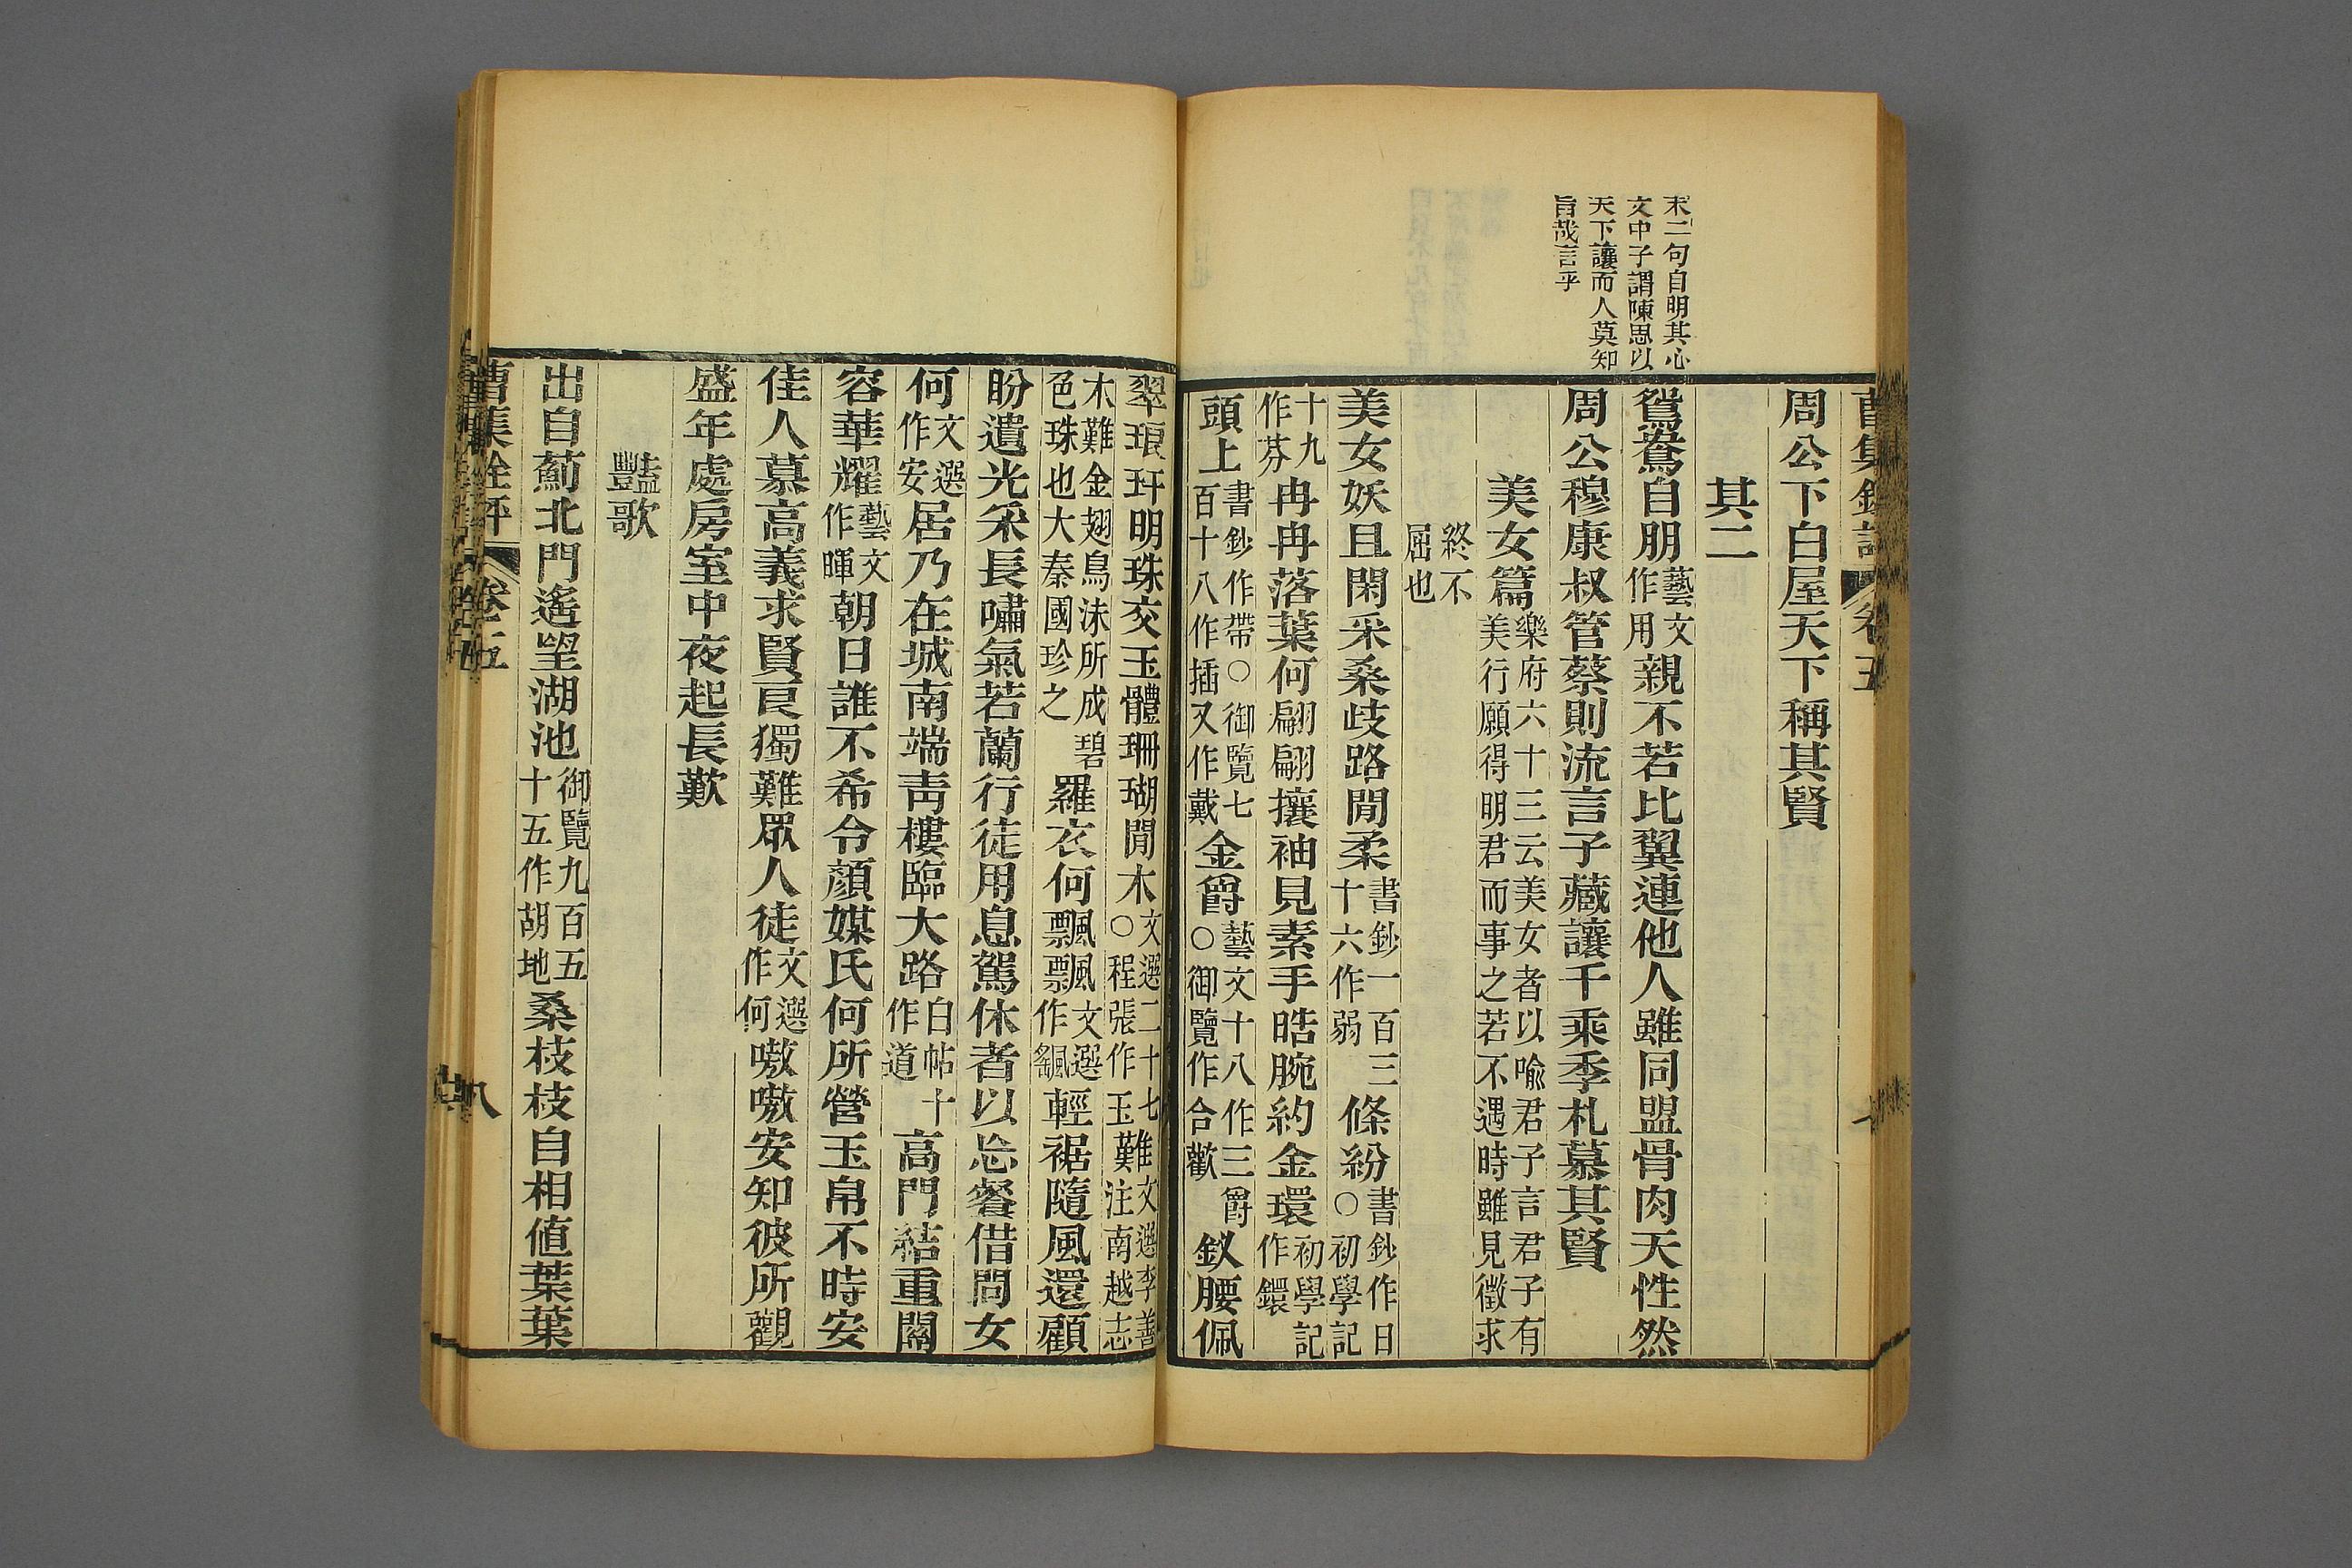 末二句自明其心
文中子謂陳思以
天下讓而人莫知
旨哉言乎
曹集銓評 卷五
周公下白屋天下稱其賢
其二
鴛鴦自朋藝文作用親不若比翼連他人雖同盟骨肉天性然
周公穆康叔管蔡則流言子藏讓千乘季札慕其賢
美女篇樂府六十三云美女者以喻君子言君子有美行願得明君而事之若不遇時雖見徵求
終不屈也
美女妖且閑采桑歧路閒柔書鈔一百三十六作弱條紛書鈔作日○初學記
十九作芬冉冉落葉何翩翩攘袖見素手晧腕約金環初學記作鐶
頭上書鈔作帶○御覽七百十八作插又作戴金爵藝文十八作三爵○御覽作合歡釵腰佩
翠琅玕明珠交玉體珊瑚閒木文選二十七○程張作玉難文選李善注南越志
木難金翅鳥沫所成碧色珠也大秦國珍之羅衣何飄飄文選作飖輕裾隨風還顧
盼遺光采長嘯氣若蘭行徒用息駕休者以忘餐借問女
何文選作安居乃在城南端靑樓臨大路白帖十作道高門結重關
容華耀藝文作暉朝日誰不希令顏媒氏何所營玉帛不時安
佳人慕高義求賢良獨難眾人徒文選作何嗷嗷安知彼所觀
盛年處房室中夜起長歎
豔歌
出自薊北門遙望湖池御覽九百五十五作胡地桑枝枝自相値葉葉
曹集銓評 卷五 八